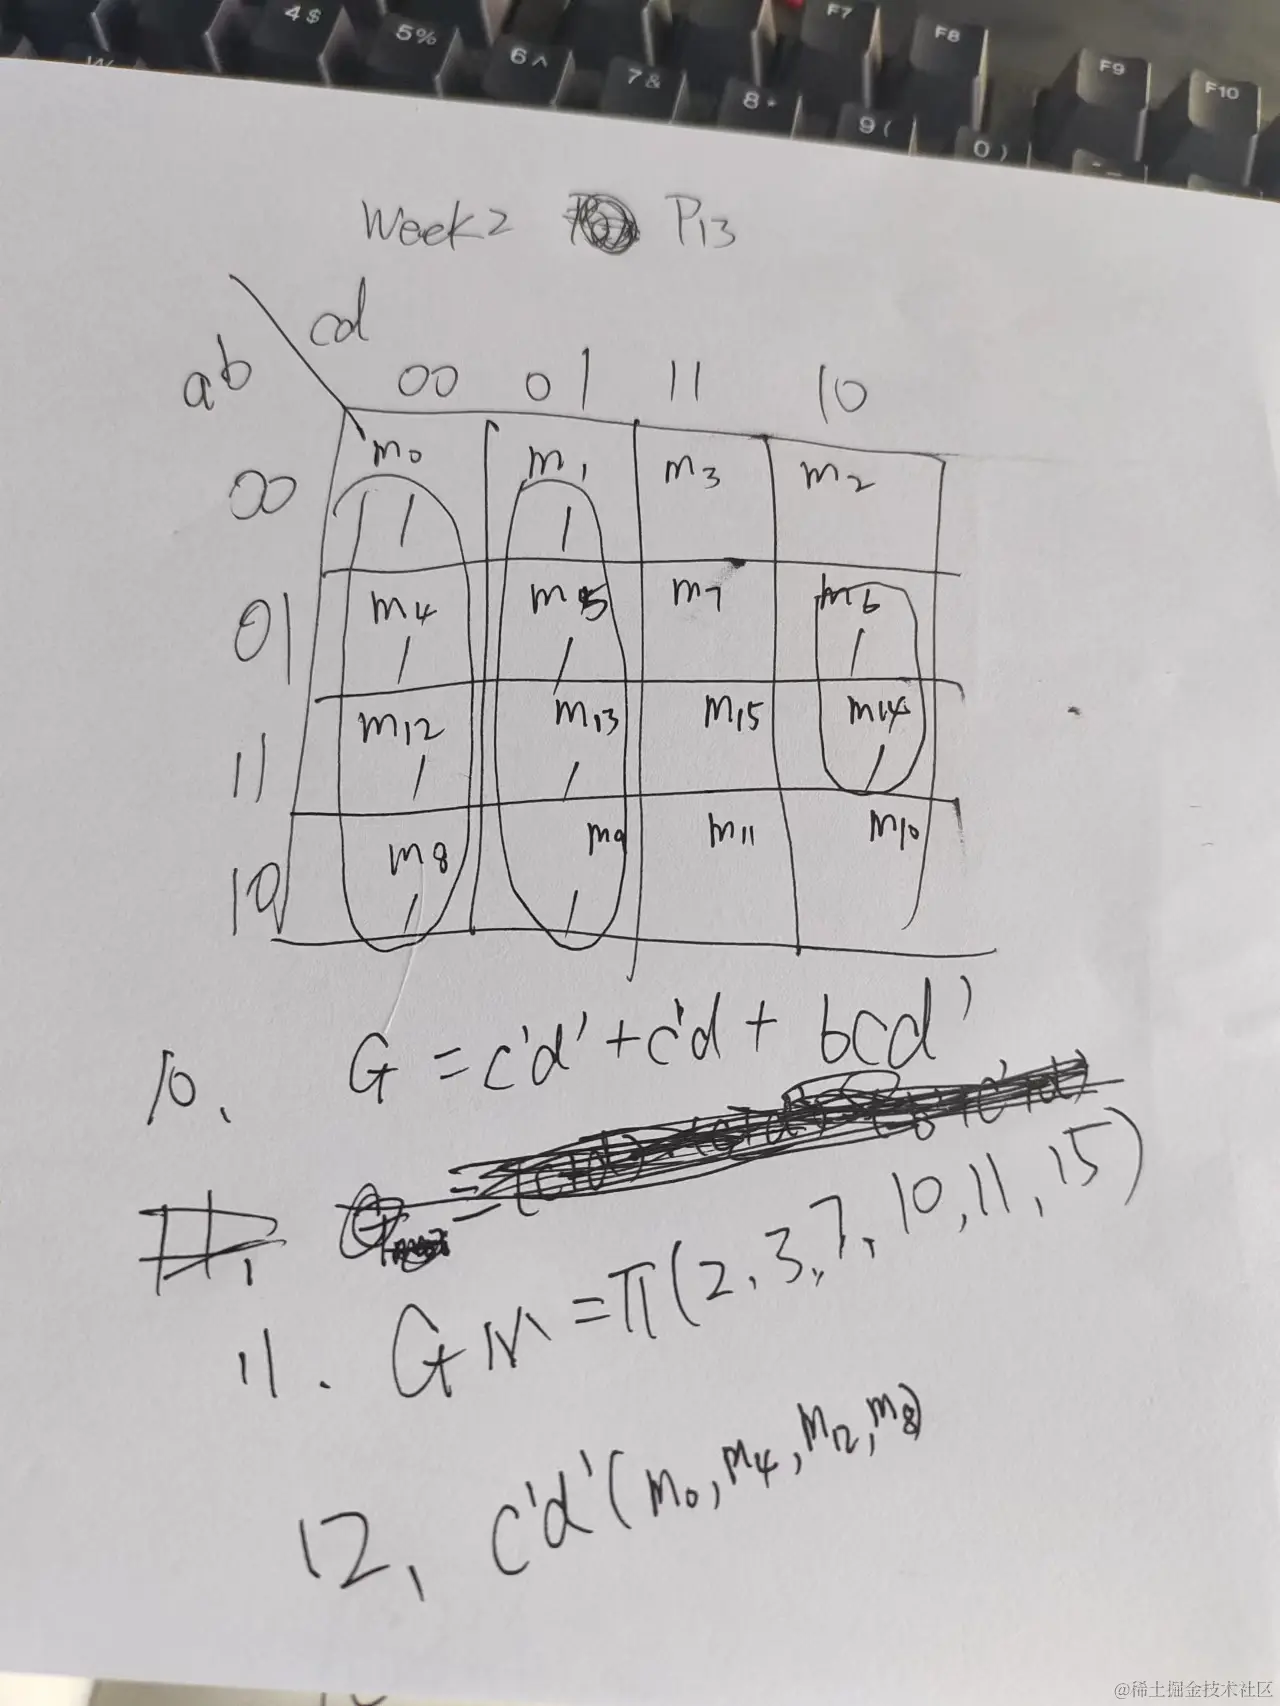 4 $
5 %
6 ^
7 &
8 *
9 (
0 )
F7
F8
F9
F10
Week2 P13
cd
ab
00 01 11 10
00 m0 m1 m3 m2
1 1 1
01 m4 m5 m7 m6
1 1 1
11 m12 m13 m15 m14
1 1 1
10 m8 m9 m11 m10
1 1
10. G = c'd' + c'd + bcd'
11. GM = π(2,3,7,10,11,15)
12, c'd'(m0,m4,m12,m8)
@稀土掘金技术社区